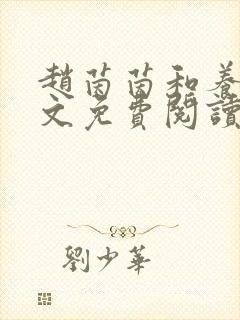 趙茵茵和養
文免費閱讀
劉少華